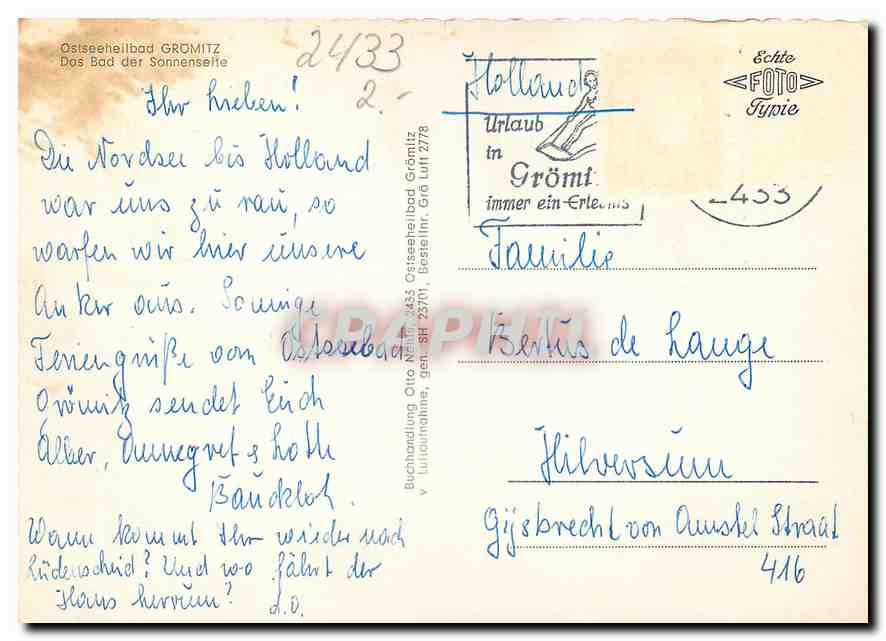 Ostseeheilbad GRÖMITZ
Das Bad der Sonnenseite
2433
2.-
Ihr Lieben!
Die Nordsee bis Holland
war uns zu rau, so
warfen wir hier unsere
Anker aus. Sonnige
Feriengrüße vom Ostseebad
Grömitz sendet Euch
Alber, Annegret & Lothl
Bauckloh.
Wann kommt Ihr wieder nach
Lüdenscheid? Und wo fährt der
Hans herrum? d.O.
Buchhandlung Otto 2433 Ostseeheilbad Grömitz
v Luftaufnahme, gen. SH 23701, Bestellnr. Grö Luft 2778
Holland
Urlaub
in
Grömi
immer ein-Erlebnis
2433
Echte
FOTO
Typie
Familie
Bertus de Lange
Hilversum
Gijsbrecht von Amstel Straat
416